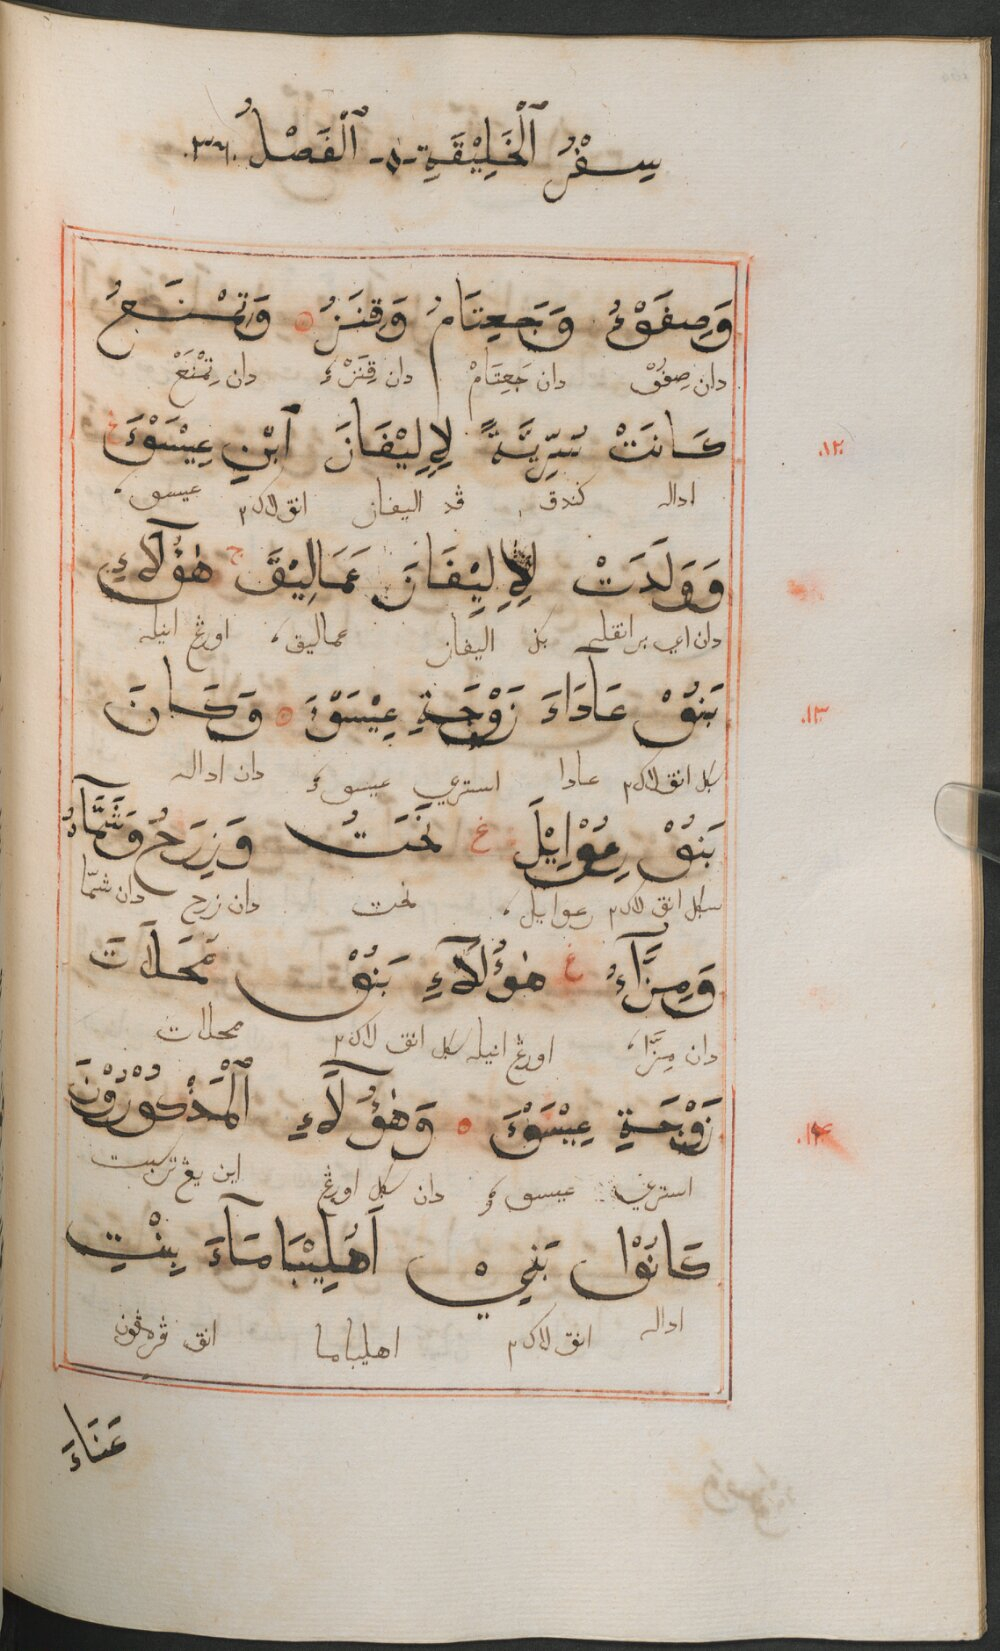 سِفْرُ ٱلْخَلِيْقَةِ ١ ٱلْفَصْلُ ٣٦
وَصِفَوْءُ وَجَعِتَامُ وَقِنَزُ ۝ وَتِمْنَعُ
دان صِفَوْ دان جَعِتَامْ دان قِنَزْ دان تِمْنَعْ
كَانَتْ سُرِّيَّةً لِاِلِيْفَازَ ٱبْنِ عِيْسَوْءَ ع
١٢
اداله كندق ڤد اليفاز انق لاكي٢ عيسو
وَوَلَدَتْ لِاِلِيْفَازَ عَمَالِيْقَ ج هٰؤُلَآءِ
دان اي برانقله بݢي اليفاز عماليق اورڠ اينله
بَنُوْ عَادَاءَ زَوْجَةِ عِيْسَوْءَ ۝ وَكَانَ
١٣
سكل انق لاكي٢ عادا استري عيسو دان اداله
بَنُوْ رِعُوْاِيْلَ ع نَحَتُ وَزِرَحُ وَشَمَّآءُ
سكل انق لاكي٢ رعوايل نحت دان زرح دان شمّا
وَمِزَّآءُ ع هٰؤُلَآءِ بَنُوْ مَحَلَاتَ
دان مِزَّا اورڠ اينله سكل انق لاكي٢ محلات
زَوْجَةِ عِيْسَوْءَ ۝ وَهٰؤُلَآءِ ٱلْمَذْكُوْرُوْنَ
١٤
استري عيسو دان سكل اورڠ اين يڠ ترسبت
كَانُوْا بَنِيْ اَهْلِيْبَامَآءَ بِنْتِ
اداله انق لاكي٢ اهليباما انق ڤرمڤون
عَنَاءَ